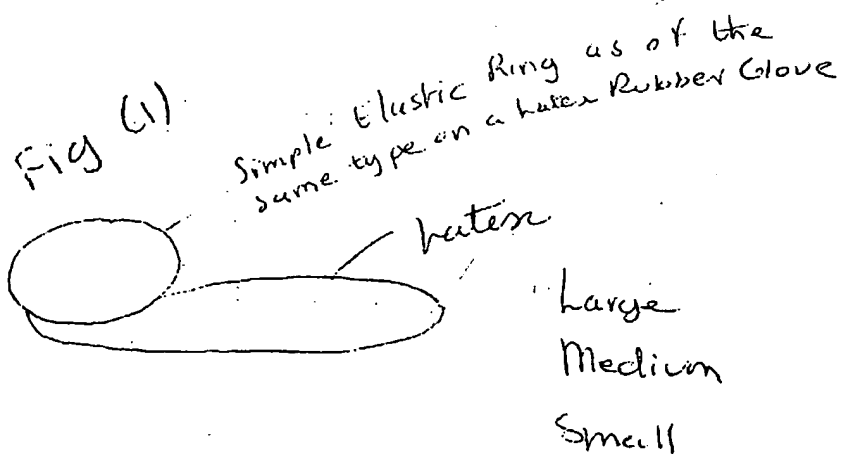 Fig (1)
Simple Elastic Ring as of the
same type on a Latex Rubber Glove
Latex
Large
Medium
Small